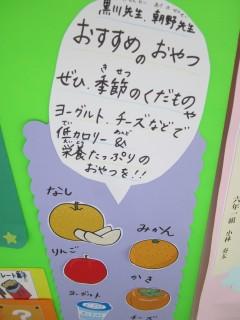 黒川先生、朝野先生
おすすめのおやつ
ぜひ、季節のくだものや
ヨーグルト、チーズなどで
低カロリー&
栄養たっぷりの
おやつを!!
なし
みかん
りんご
かき
ヨーグルト
チーズ
六年一組
小林